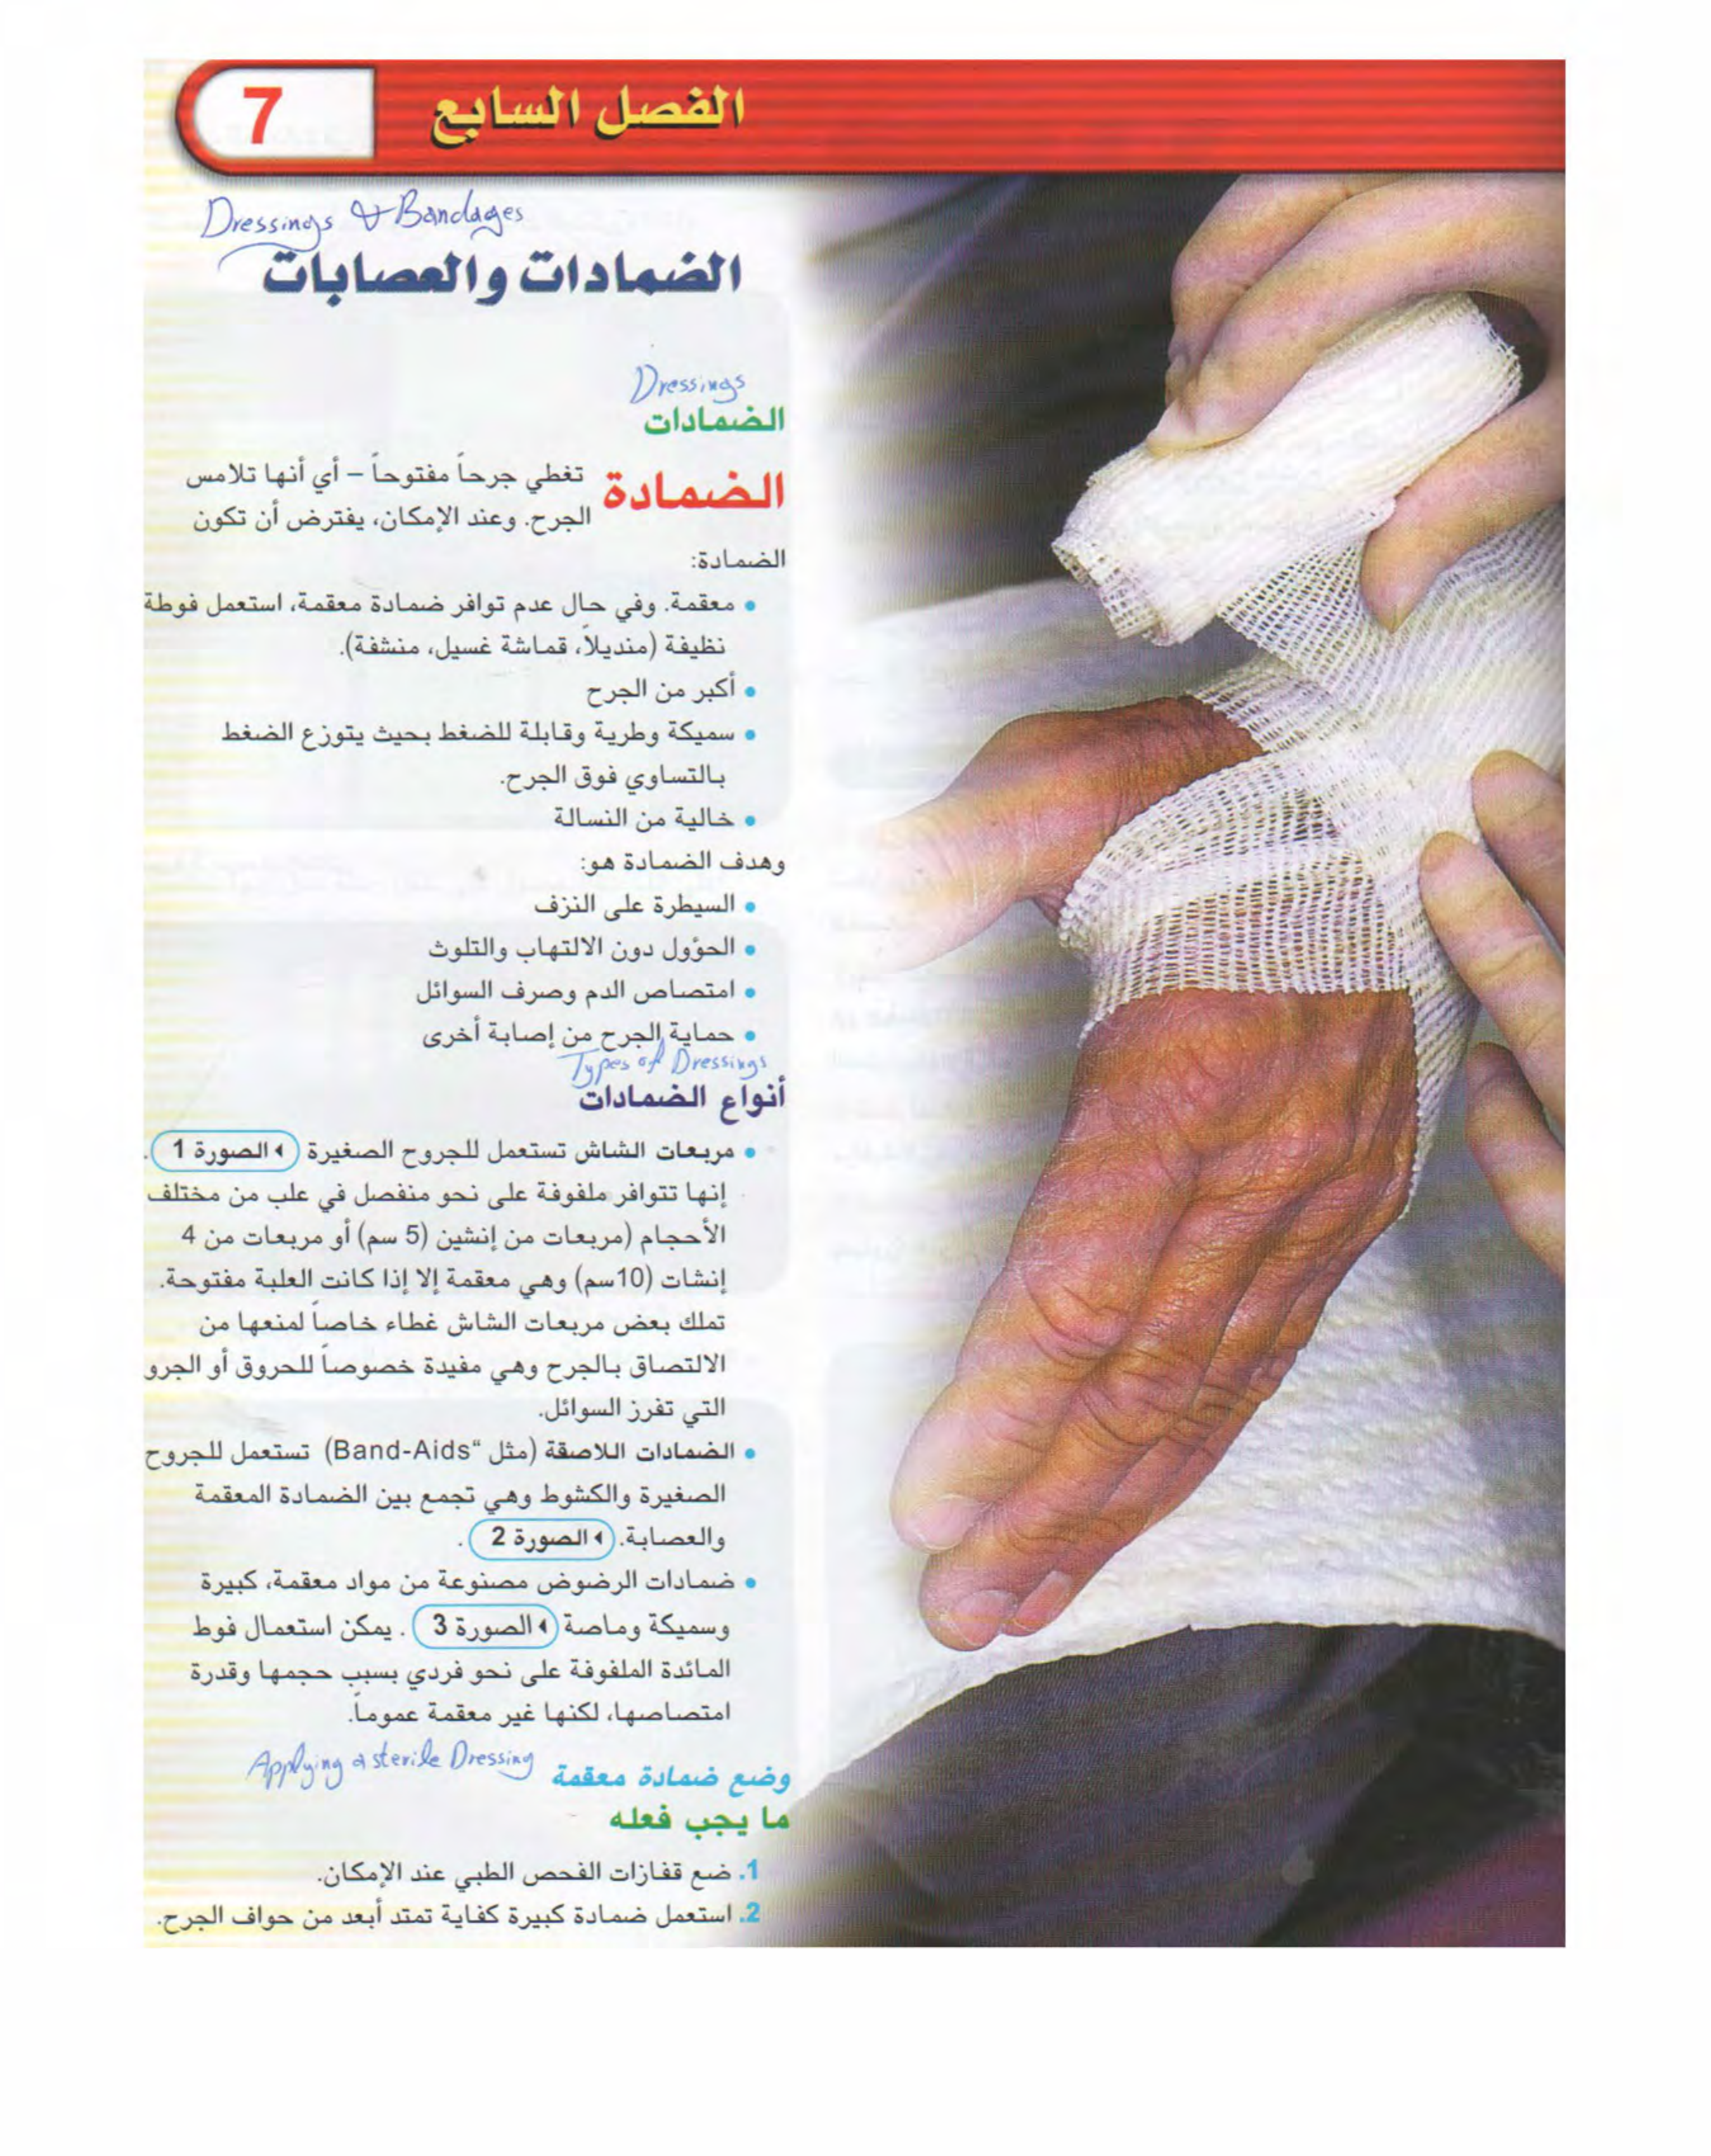 الفصل السابع
7
Dressings & Bandages
الضمادات والعصابات
Dressings
الضمادات
الضمادة تغطي جرحاً مفتوحاً – أي أنها تلامس
الجرح. وعند الإمكان، يفترض أن تكون
الضمادة:
• معقمة. وفي حال عدم توافر ضمادة معقمة، استعمل فوطة
نظيفة (منديلاً، قماشة غسيل، منشفة).
• أكبر من الجرح
• سميكة وطرية وقابلة للضغط بحيث يتوزع الضغط
بالتساوي فوق الجرح.
• خالية من النسالة
وهدف الضمادة هو:
• السيطرة على النزف
• الحؤول دون الالتهاب والتلوث
• امتصاص الدم وصرف السوائل
• حماية الجرح من إصابة أخرى
Types of Dressings
أنواع الضمادات
• مربعات الشاش تستعمل للجروح الصغيرة الصورة 1.
إنها تتوافر ملفوفة على نحو منفصل في علب من مختلف
الأحجام (مربعات من إنشين (5 سم) أو مربعات من 4
إنشات (10سم) وهي معقمة إلا إذا كانت العلبة مفتوحة.
تملك بعض مربعات الشاش غطاء خاصاً لمنعها من
الالتصاق بالجرح وهي مفيدة خصوصاً للحروق أو الجرو
التي تفرز السوائل.
• الضمادات اللاصقة (مثل "Band-Aids) تستعمل للجروح
الصغيرة والكشوط وهي تجمع بين الضمادة المعقمة
والعصابة. الصورة 2.
• ضمادات الرضوض مصنوعة من مواد معقمة، كبيرة
وسميكة وماصة الصورة 3. يمكن استعمال فوط
المائدة الملفوفة على نحو فردي بسبب حجمها وقدرة
امتصاصها، لكنها غير معقمة عموماً.
Applying a sterile Dressing
وضع ضمادة معقمة
ما يجب فعله
1. ضع قفازات الفحص الطبي عند الإمكان.
2. استعمل ضمادة كبيرة كفاية تمتد أبعد من حواف الجرح.